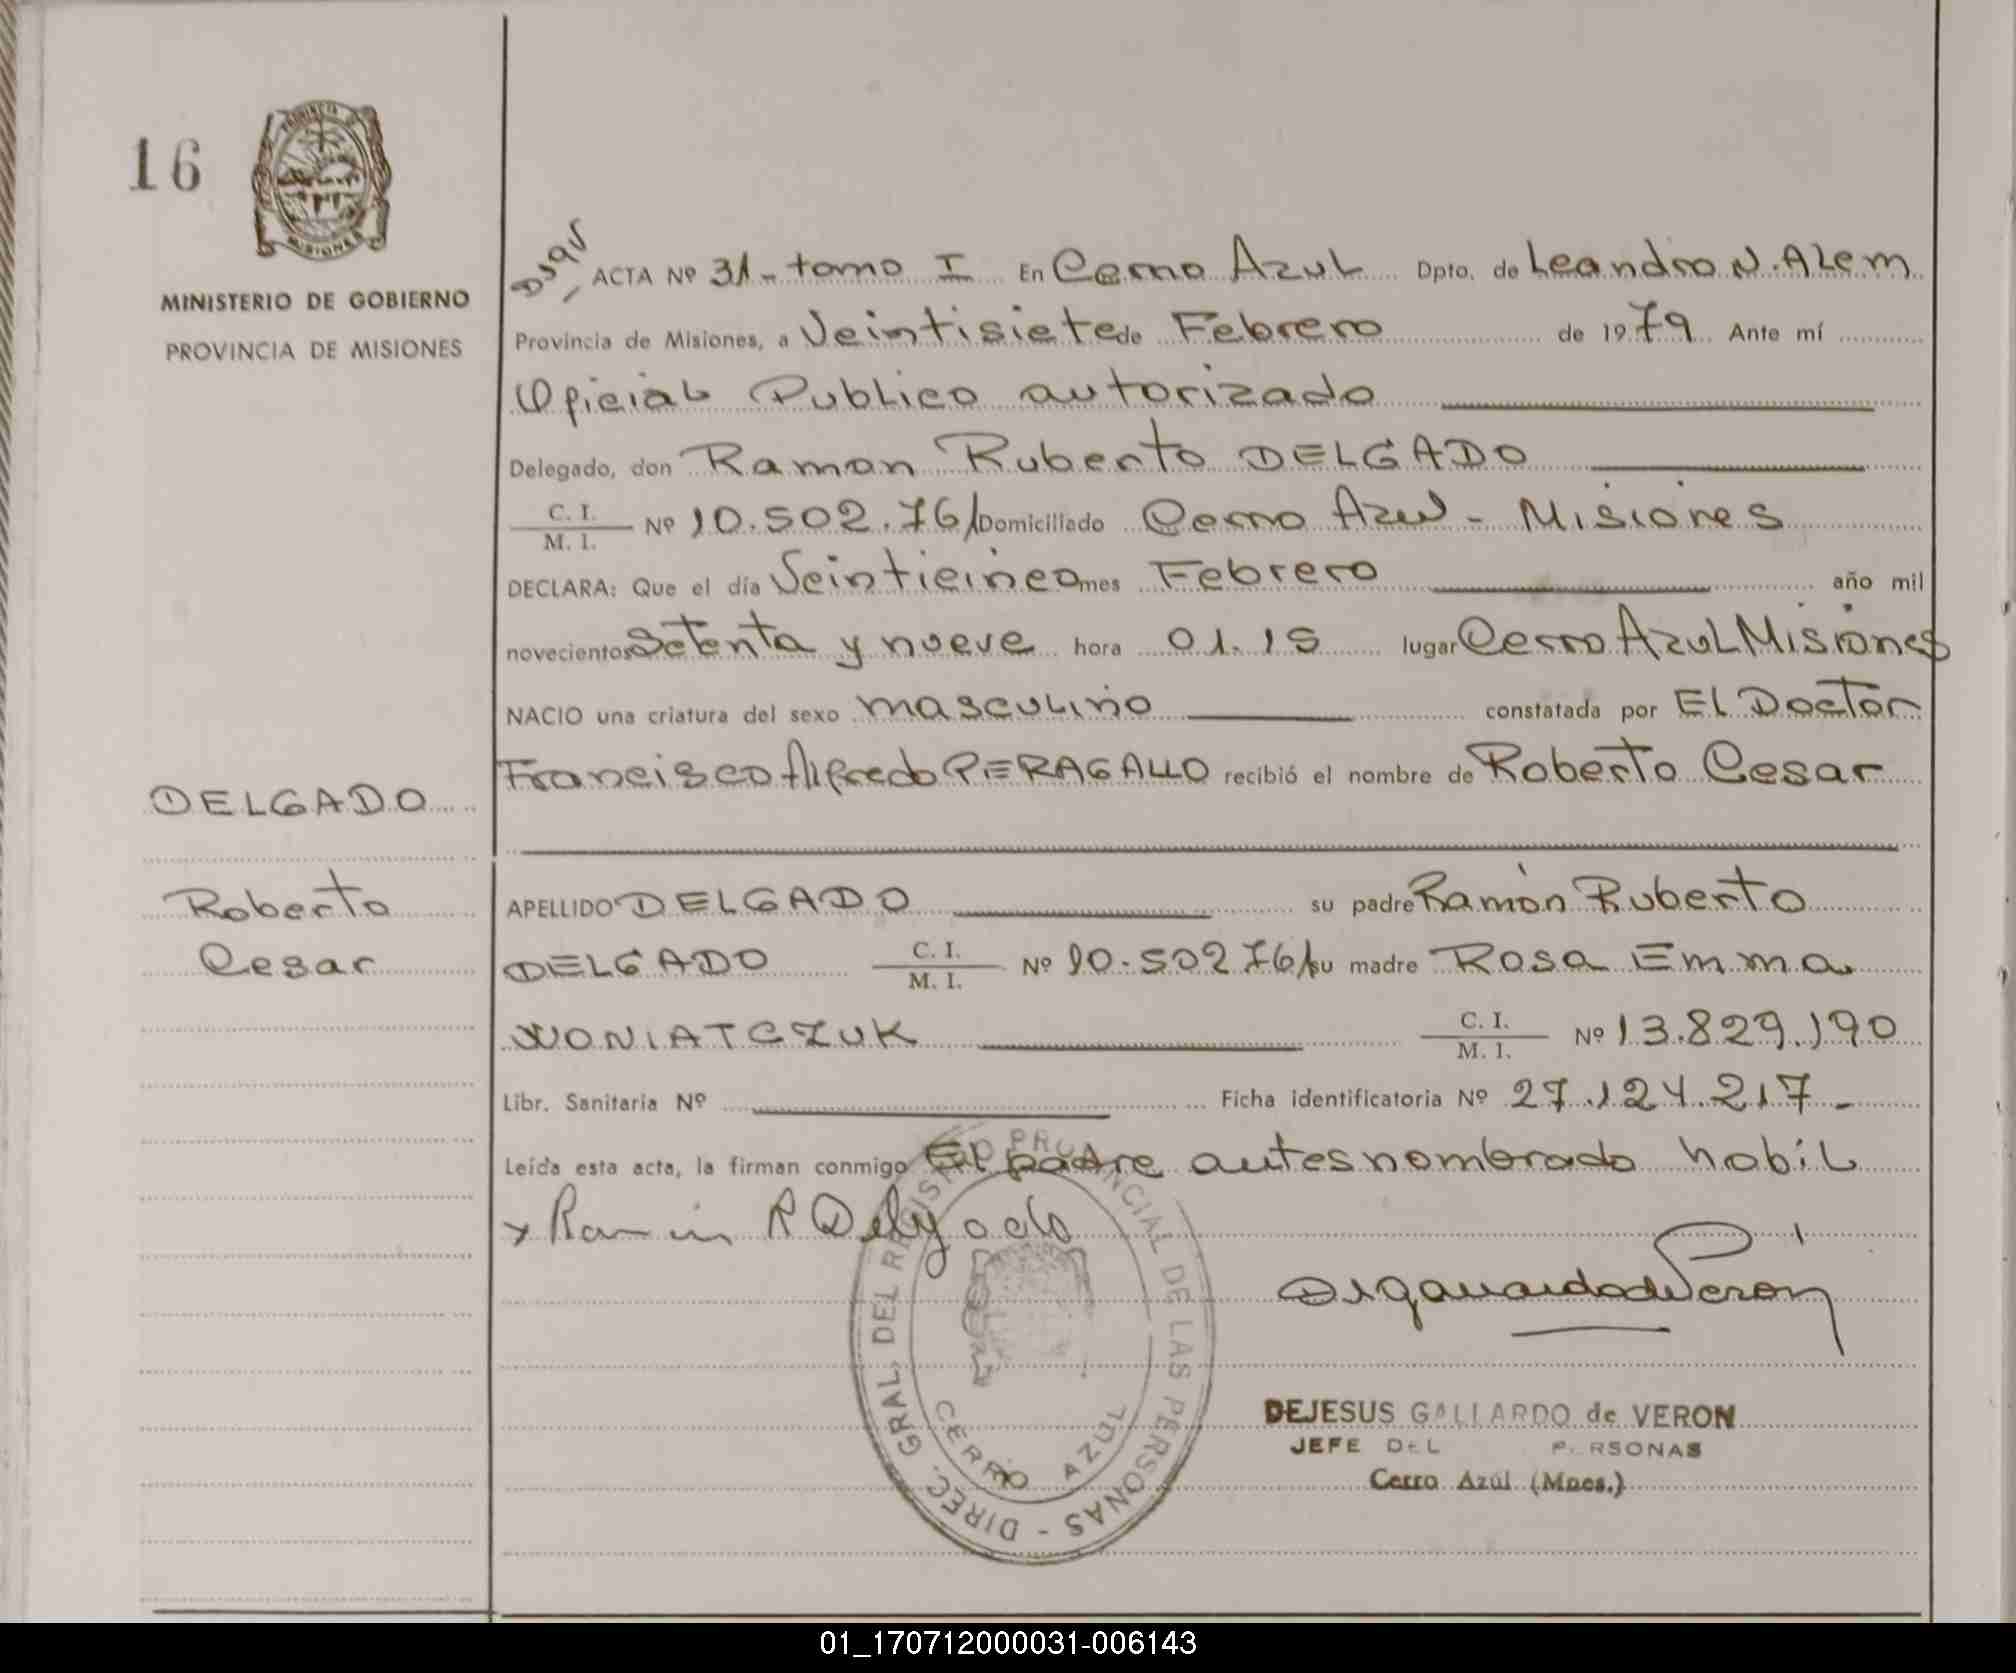 16
PROVINCIA DE
MISIONES
MINISTERIO DE GOBIERNO
PROVINCIA DE MISIONES
DELGADO
Roberto
Cesar
ACTA Nº 31- tomo I En Cerro Azul Dpto. de Leandro N. Alem
Provincia de Misiones, a Veintisiete de Febrero de 1979 Ante mí
Oficial Publico autorizado
Delegado, don Ramon Ruberto DELGADO
C. I.
M. I. Nº 10.502.761 Domiciliado Cerro Azul - Misiones
DECLARA: Que el día Veinticinco mes Febrero año mil
novecientos Setenta y nueve hora 01.15 lugar Cerro Azul Misiones
NACIO una criatura del sexo masculino constatada por El Doctor
Francisco Alfredo PERAGALLO recibió el nombre de Roberto Cesar
APELLIDO DELGADO su padre Ramón Ruberto
DELGADO C. I.
M. I. Nº 10.502761 su madre Rosa Emma
WONIATCZUK C. I.
M. I. Nº 13.829.190
Libr. Sanitaria Nº Ficha identificatoria Nº 27.124.217-
Leída esta acta, la firman conmigo El padre antes nombrado habil
x Ramon R Delgado
DIREC. GRAL. DEL REGISTRO PROVINCIAL DE LAS PERSONAS -
CERRO AZUL
D J gallardo de Veron
DEJESUS GALLARDO de VERON
JEFE DEL PERSONAS
Cerro Azúl (Mnes.)
01_170712000031-006143